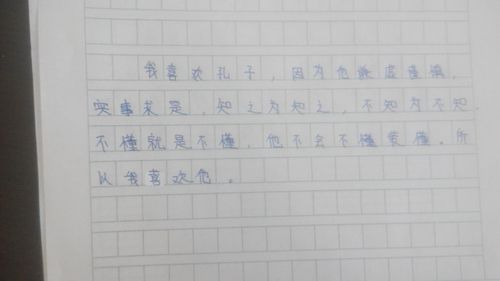 我喜欢孔子，因为他谦虚谨慎，
实事求是，知之为知之，不知为不知，
不懂就是不懂，他不会不懂装懂。所
以我喜欢他。